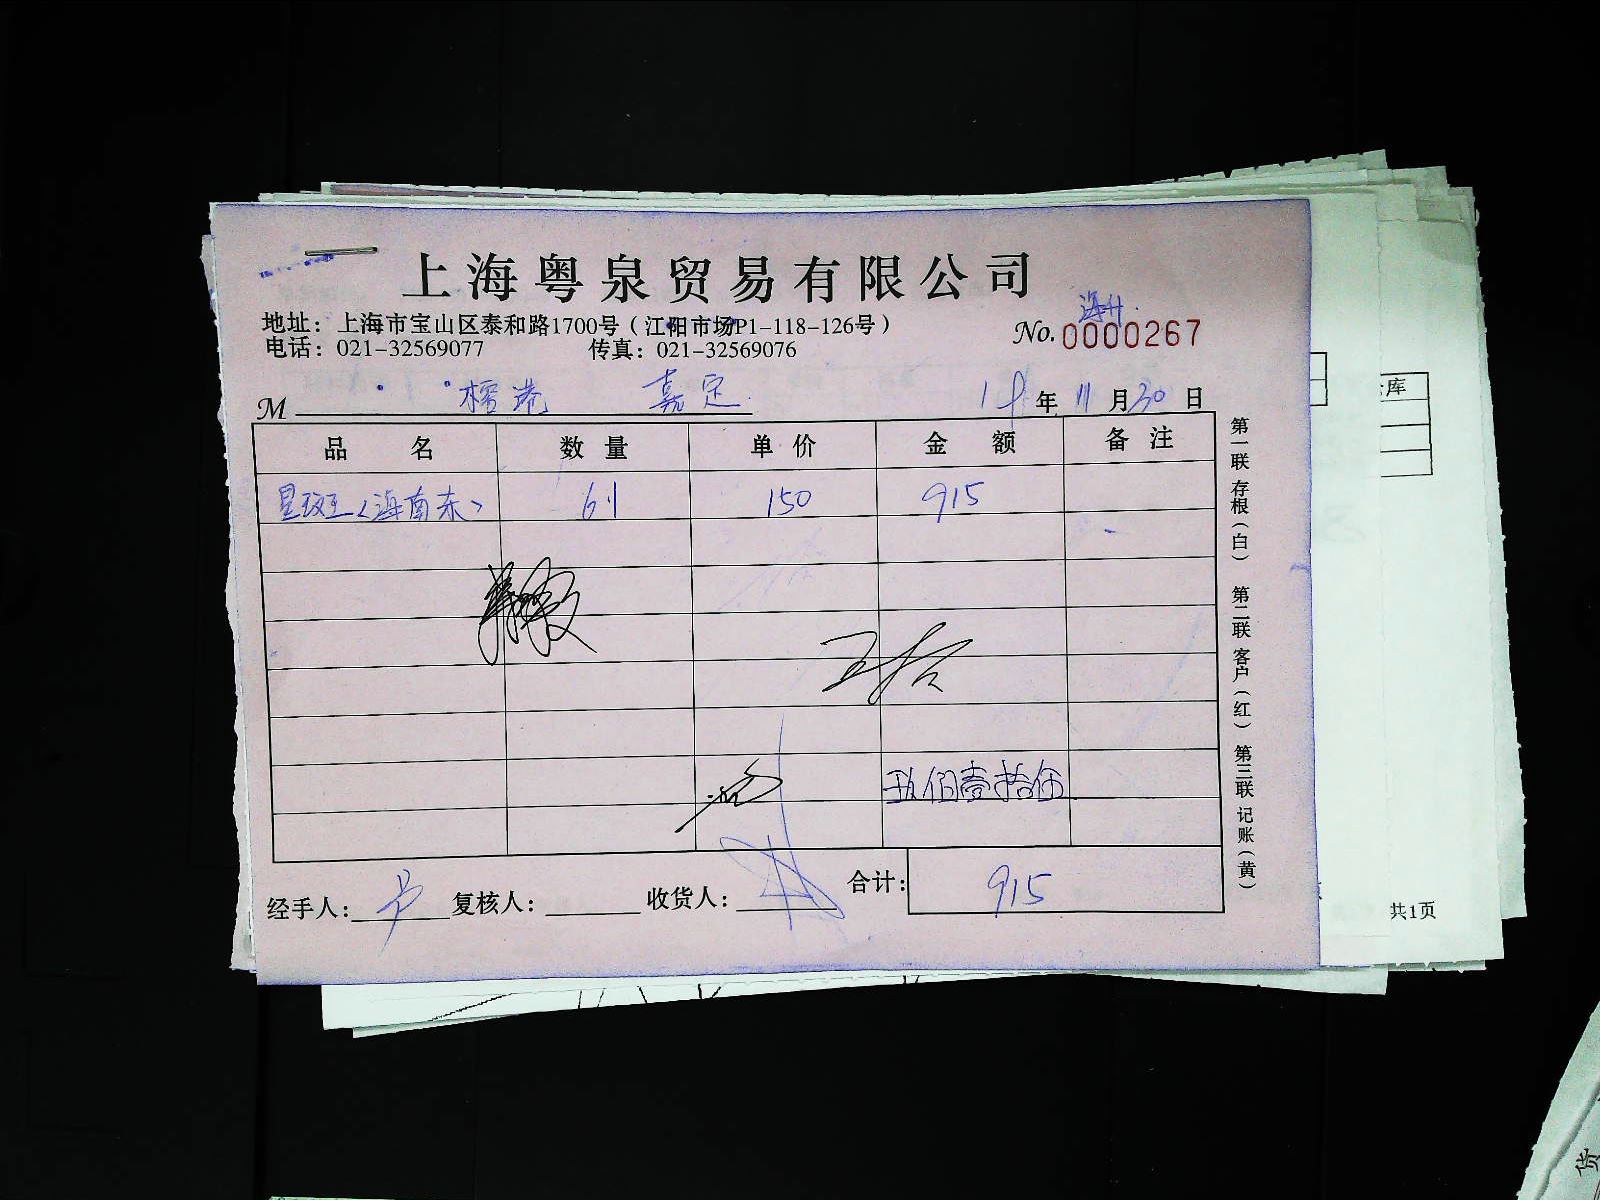 上海粤泉贸易有限公司
地址：上海市宝山区泰和路1700号（江阳市场P1-118-126号）
电话：021-32569077 传真：021-32569076
No. 0000267
M 嘉定 年 11 月 30 日
品名 数量 单价 金额 备注
星斑王（海南东） 6.1 150 915
玖佰壹拾伍
经手人： 复核人： 收货人： 合计： 915
第一联 存根（白） 第二联 客户（红） 第三联 记账（黄）
库
共1页
货